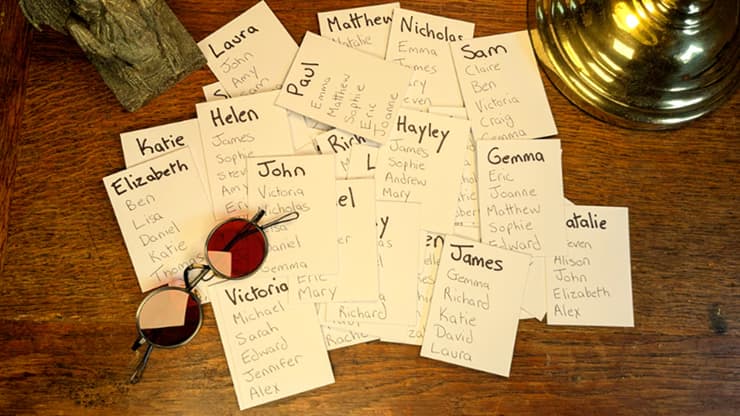 Laura
John
Amy
Matthew
Natalie
Nicholas
Emma
James
Sam
Claire
Ben
Victoria
Craig
Gemma
Paul
Emma
Matthew
Sophie
Eric
Joanne
Katie
Helen
James
Sophie
Amy
Hayley
James
Sophie
Andrew
Mary
Gemma
Eric
Joanne
Matthew
Sophie
Edward
Elizabeth
Ben
Lisa
Daniel
Katie
Thomas
John
Victoria
Gemma
Eric
Mary
Richard
Victoria
Michael
Sarah
Edward
Jennifer
Alex
James
Gemma
Richard
Katie
David
Laura
Alison
John
Elizabeth
Alex